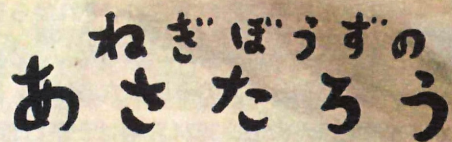 ねぎぼうずの
あさたろう